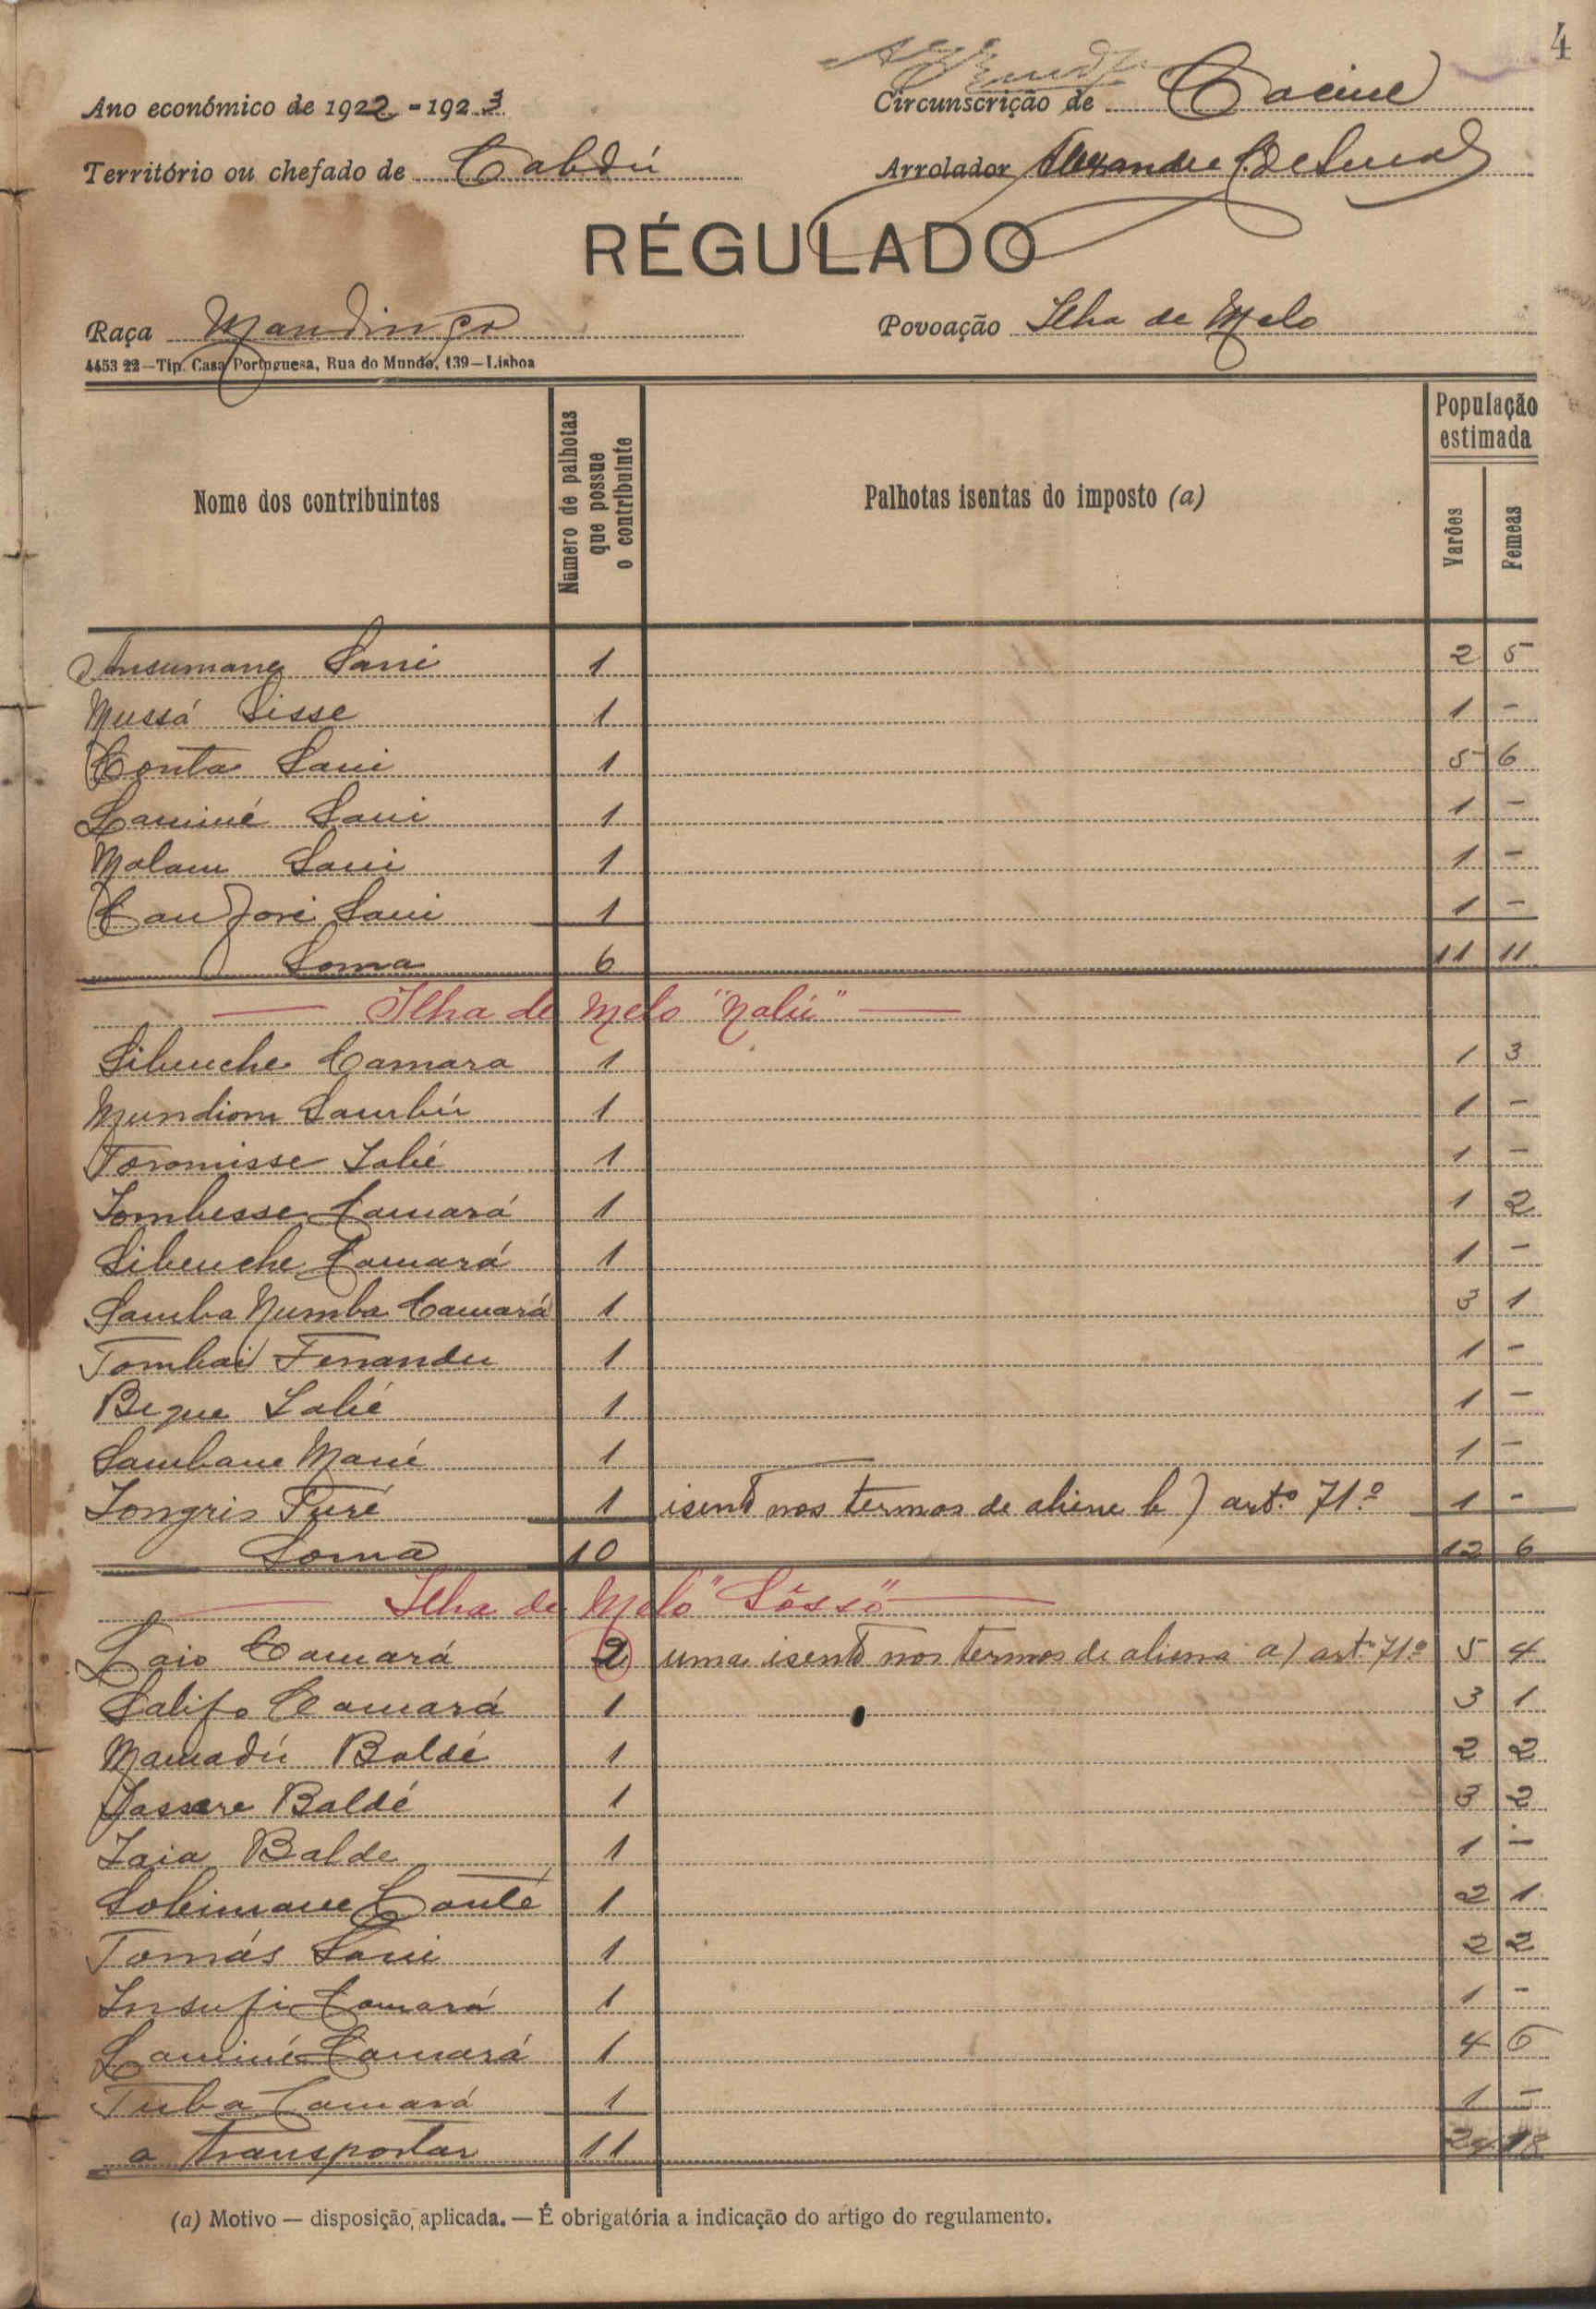 4
Ano económico de 1922-1923 Circunscrição de Cacine
Território ou chefado de Cabdú Arrolador Alexandre
RÉGULADO
Raça Mandinga Povoação Ilha de Melo
4453 22—Tip. Casa Portuguesa, Rua do Mundo, 139—Lisboa
Nome dos contribuintes Número de palhotas que possue o contribuinte Palhotas isentas do imposto (a) População estimada Varões Femeas
Ansumane Sani 1 2 5
Mussá Sisse 1 1 -
Conta Sani 1 5 6
Laminé Sani 1 1 -
Malam Sani 1 1 -
Canjori Sani 1 1 -
Soma 6 11 11
— Ilha de Melo "Nalú" —
Sibenche Camara 1 1 3
Mundiom Sambú 1 1 -
Toromisse Salié 1 1 -
Tombesse Camará 1 1 2
Sibenche Camará 1 1 -
Samba Numba Camará 1 3 1
Tombai Fernandu 1 1 -
Beque Salié 1 1 -
Sambane Mané 1 1 -
Tongris Turé 1 isento nos termos de aliene b) artº 71º 1 -
Soma 10 12 6
— Ilha de Melo "Sôssô" —
Laio Camará 2 uma isento nos termos de aliena a) artº 71º 5 4
Salifo Camará 1 3 1
Mamadú Baldé 1 2 2
Jassere Baldé 1 3 2
Iaia Balde 1 1 -
Soleimane Conté 1 2 1
Tomás Sani 1 2 2
Insufi Camará 1 1 -
Laminé Camará 1 4 6
Tuba Camará 1 1 -
a transportar 11 24 18
(a) Motivo — disposição aplicada. — É obrigatória a indicação do artigo do regulamento.